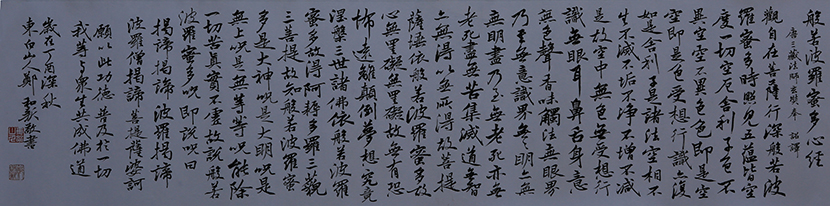 般若波羅蜜多心經
唐三藏法師玄奘奉 詔譯
觀自在菩薩行深般若波
羅蜜多時照見五蘊皆空
度一切苦厄舍利子色不
異空空不異色色即是空
空即是色受想行識亦復
如是舍利子是諸法空相不
生不滅不垢不淨不增不減
是故空中無色無受想行
識無眼耳鼻舌身意
無色聲香味觸法無眼界
乃至無意識界無〻明亦無
無明盡乃至無老死亦無
老死盡無苦集滅道無智
亦無得以無所得故菩提
薩埵依般若波羅蜜多故
心無罣礙無罣礙故無有恐
怖遠離顛倒夢想究竟
涅槃三世諸佛依般若波羅
蜜多故得阿耨多羅三藐
三菩提故知般若波羅蜜
多是大神咒是大明咒是
無上咒是無等等咒能除
一切苦真實不虛故說般若
波羅蜜多咒即說咒曰
揭諦揭諦 波羅揭諦
波羅僧揭諦 菩提薩婆訶
願以此功德 普及於一切
我等與眾生 共成佛道
歲在丁酉深秋
東白山人鄭和敬書